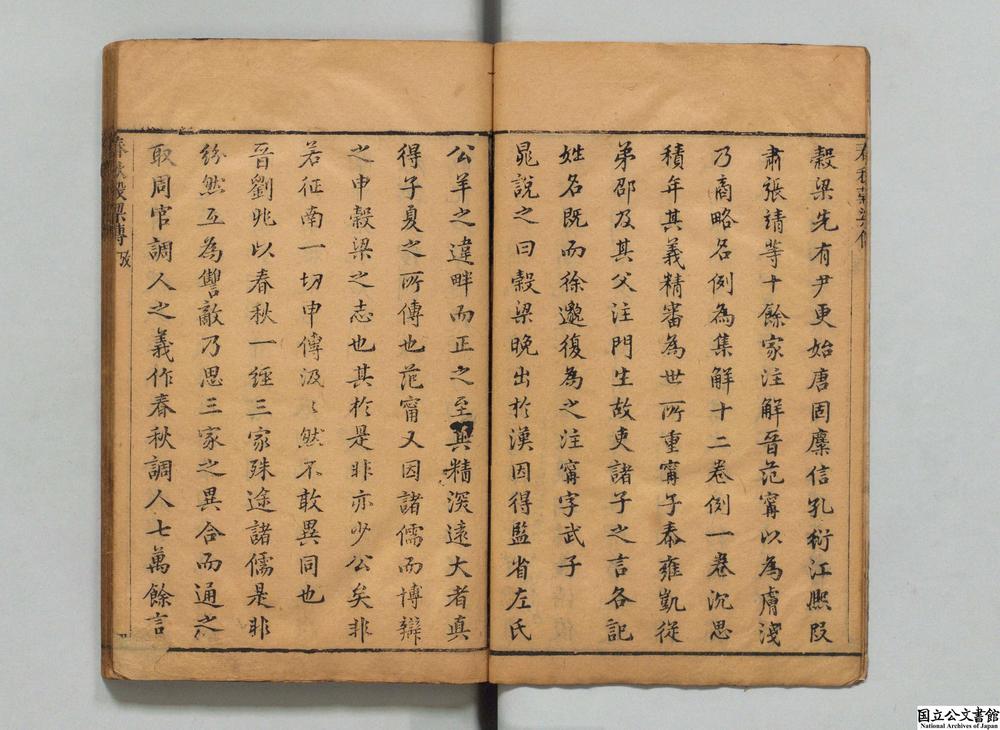 穀梁先有尹更始唐固麋信孔衍江熈段
肅張靖等十餘家注解晉范甯以為膚淺
乃商略名例為集解十二卷例一卷沉思
積年其義精審為世所重甯子泰雍凱從
弟邵及其父注門生故吏諸子之言各記
姓名既而徐邈復為之注甯字武子
晁說之曰穀梁晚出於漢因得監省左氏
公羊之違畔而正之至其精深遠大者真
得子夏之所傳也范甯又因諸儒而博辯
之申穀梁之志也其於是非亦少公矣非
若征南一切申傳汲〻然不敢異同也
晉劉兆以春秋一經三家殊途諸儒是非
紛然互為讐敵乃思三家之異合而通之
取周官調人之義作春秋調人七萬餘言
春秋穀梁傳
国立公文書館
National Archives of Japan